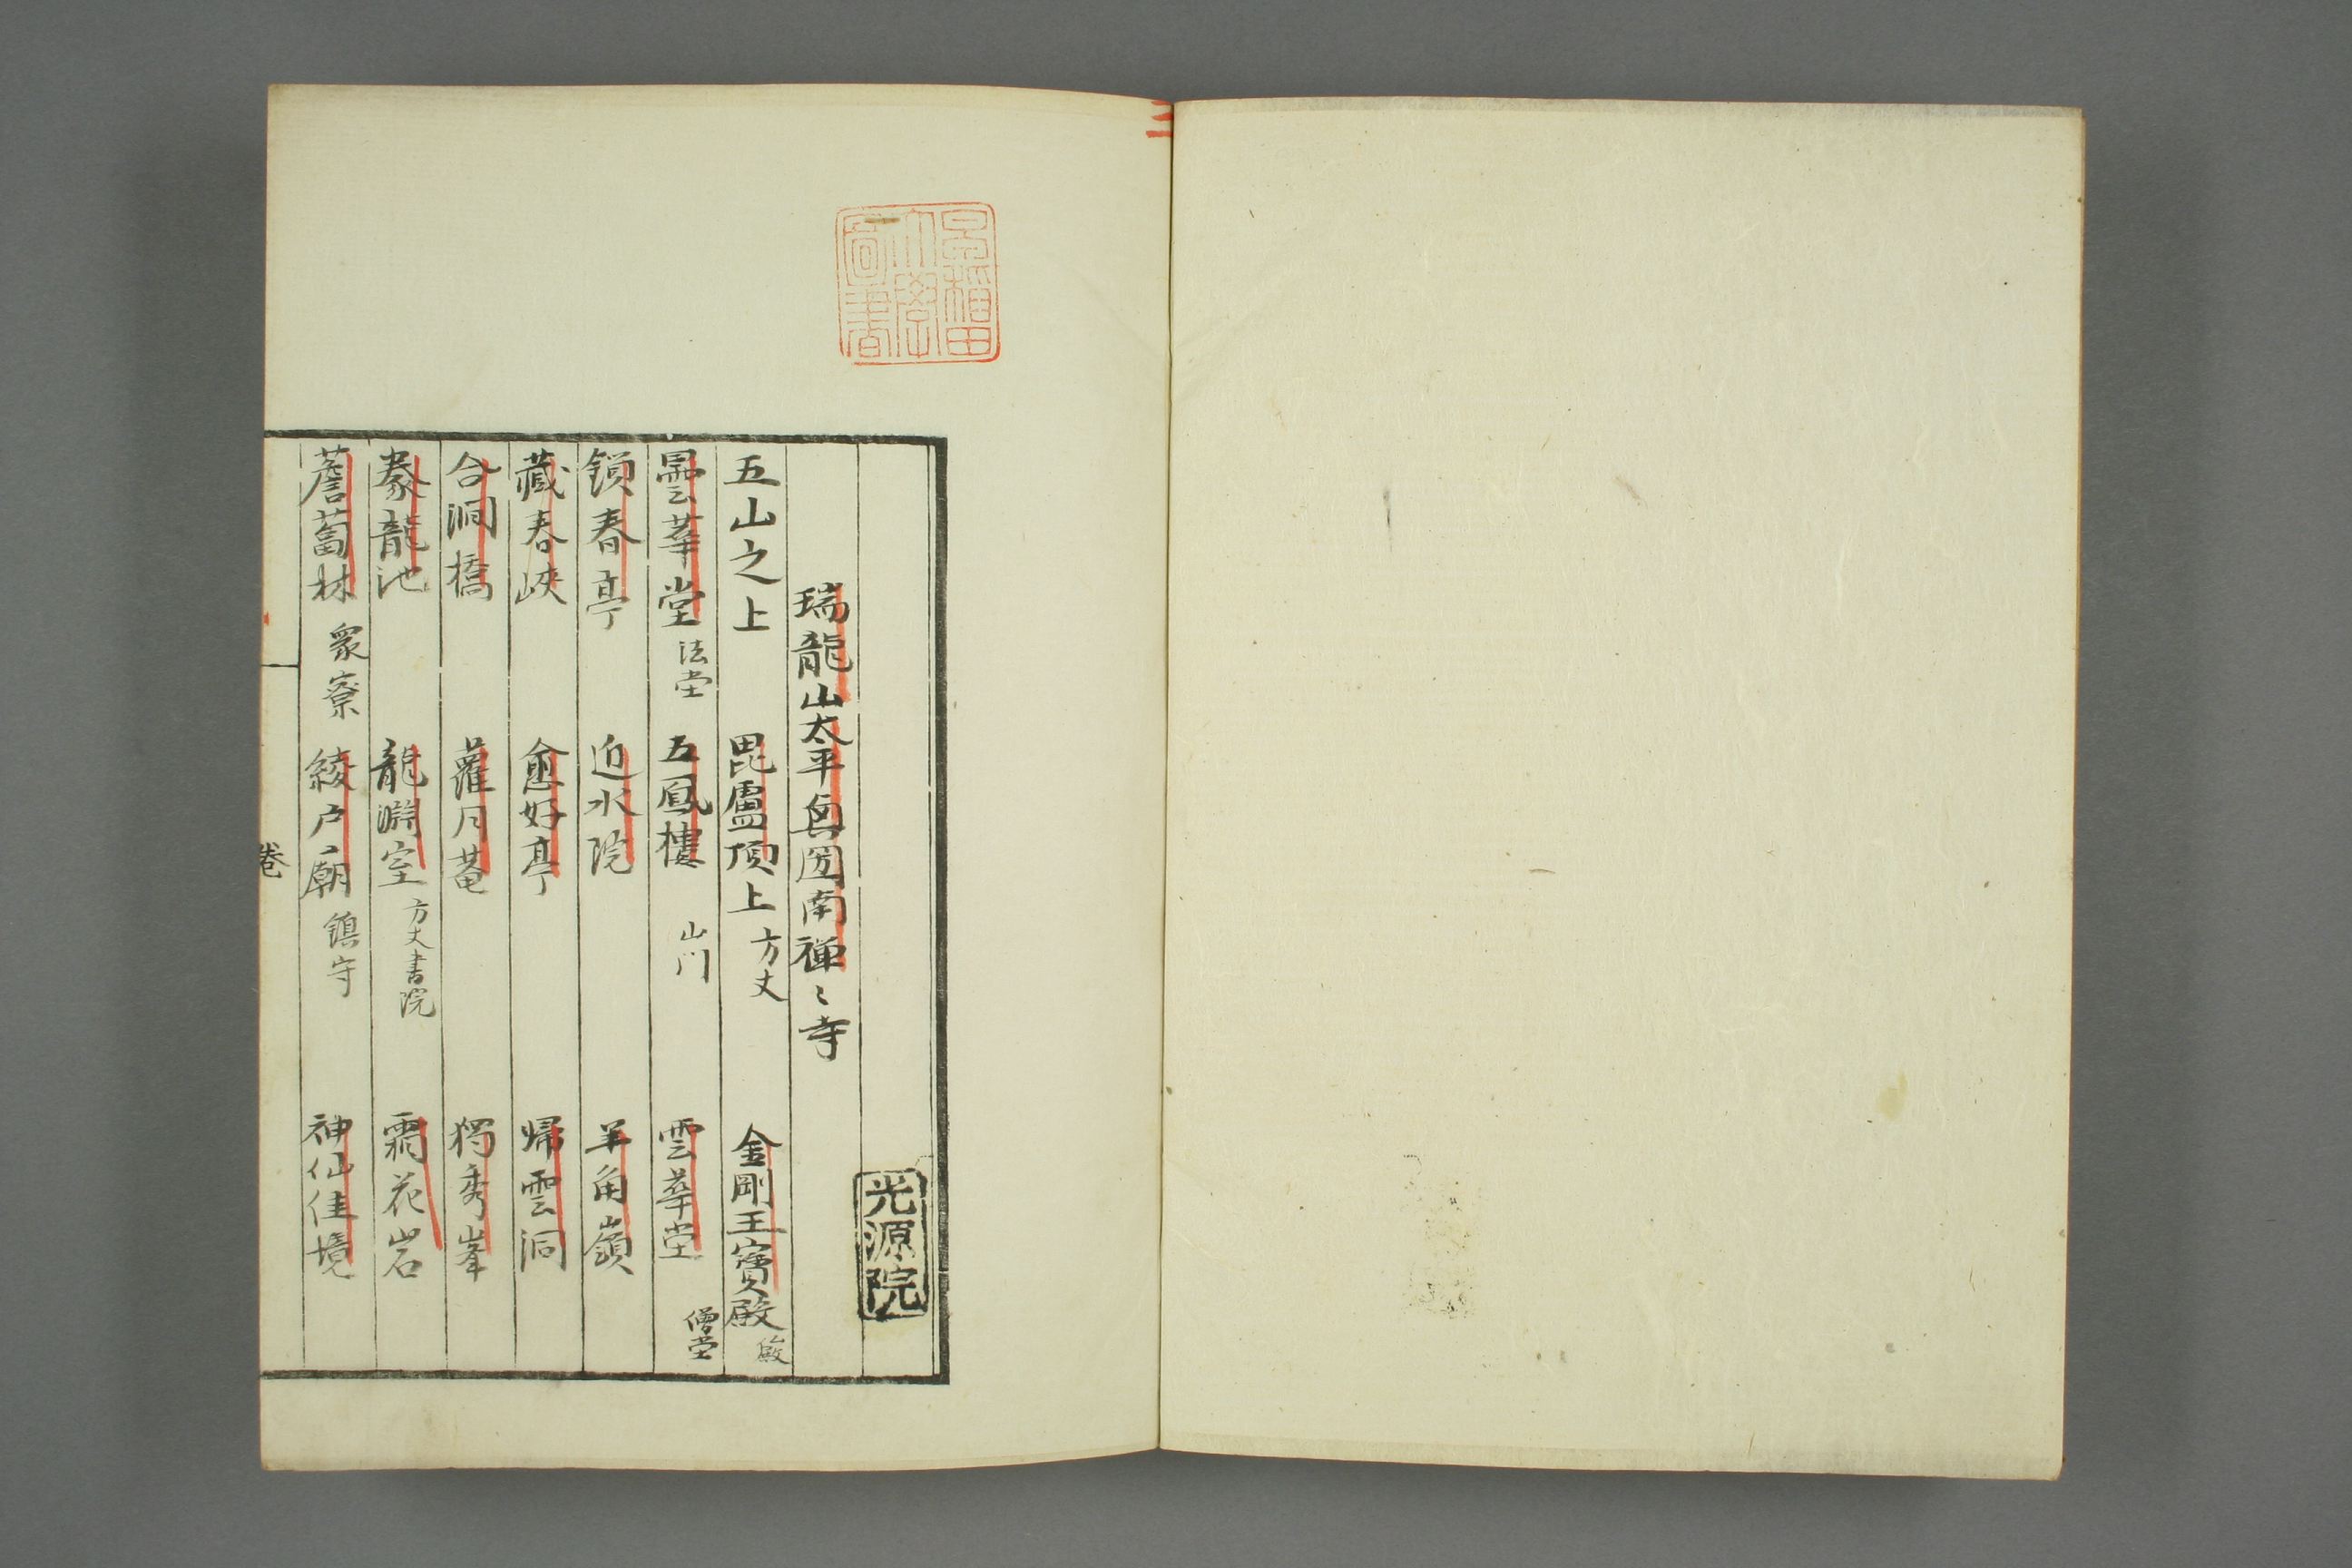 早稲田
大學
圖書
光源院
瑞龍山太平興国南禅〻寺
五山之上　毘盧頂上 方丈　金剛王寳殿
曇華堂 法堂　五鳳樓 山門　雲華堂 僧堂
鎖春亭　近水院　羊角嶺
藏春峽　愈好亭　帰雲洞
合澗橋　蘿月菴　獨秀峯
拳龍池　龍淵室 方丈書院　霜花岩
薝蔔林 衆寮　綾戸廟 鎮守　神仙佳境
巻